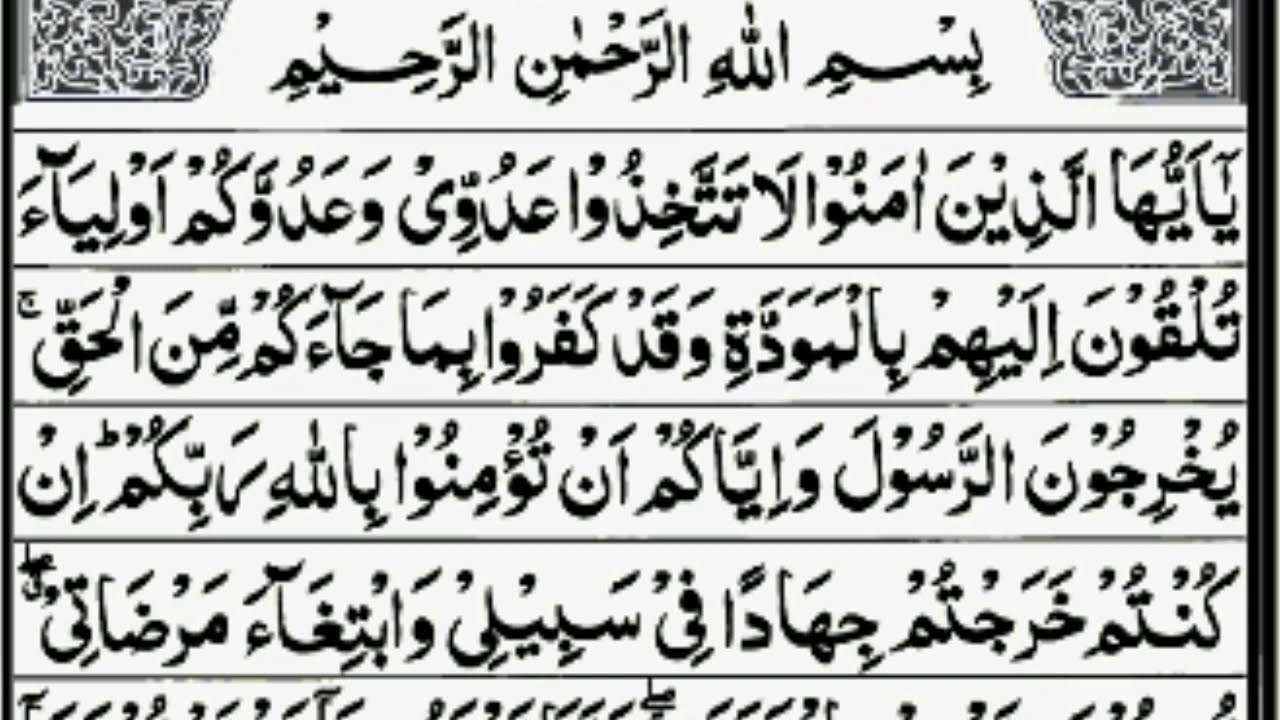 بِسْمِ اللهِ الرَّحْمٰنِ الرَّحِيْمِ
يٰۤاَيُّهَا الَّذِيْنَ اٰمَنُوْا لَا تَتَّخِذُوْا عَدُوِّىْ وَعَدُوَّكُمْ اَوْلِيَآءَ
تُلْقُوْنَ اِلَيْهِمْ بِالْمَوَدَّةِ وَقَدْ كَفَرُوْا بِمَا جَآءَكُمْ مِّنَ الْحَقِّ ۚ
يُخْرِجُوْنَ الرَّسُوْلَ وَاِيَّاكُمْ اَنْ تُؤْمِنُوْا بِاللهِ رَبِّكُمْ ؕ اِنْ
كُنْتُمْ خَرَجْتُمْ جِهَادًا فِىْ سَبِيْلِىْ وَابْتِغَآءَ مَرْضَاتِىْ ۖ